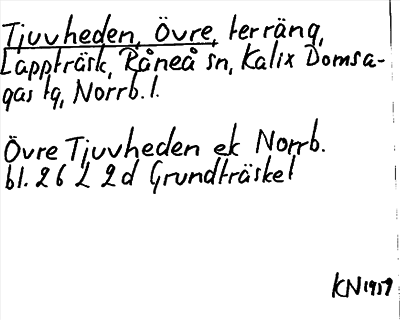 Tjuvheden, Övre, terräng,
Lappträsk, Råneå sn, Kalix Domsa-
gas tg, Norrb. l.
Övre Tjuvheden ek Norrb.
bl. 26 L 2d Grundträsket
KN 1959